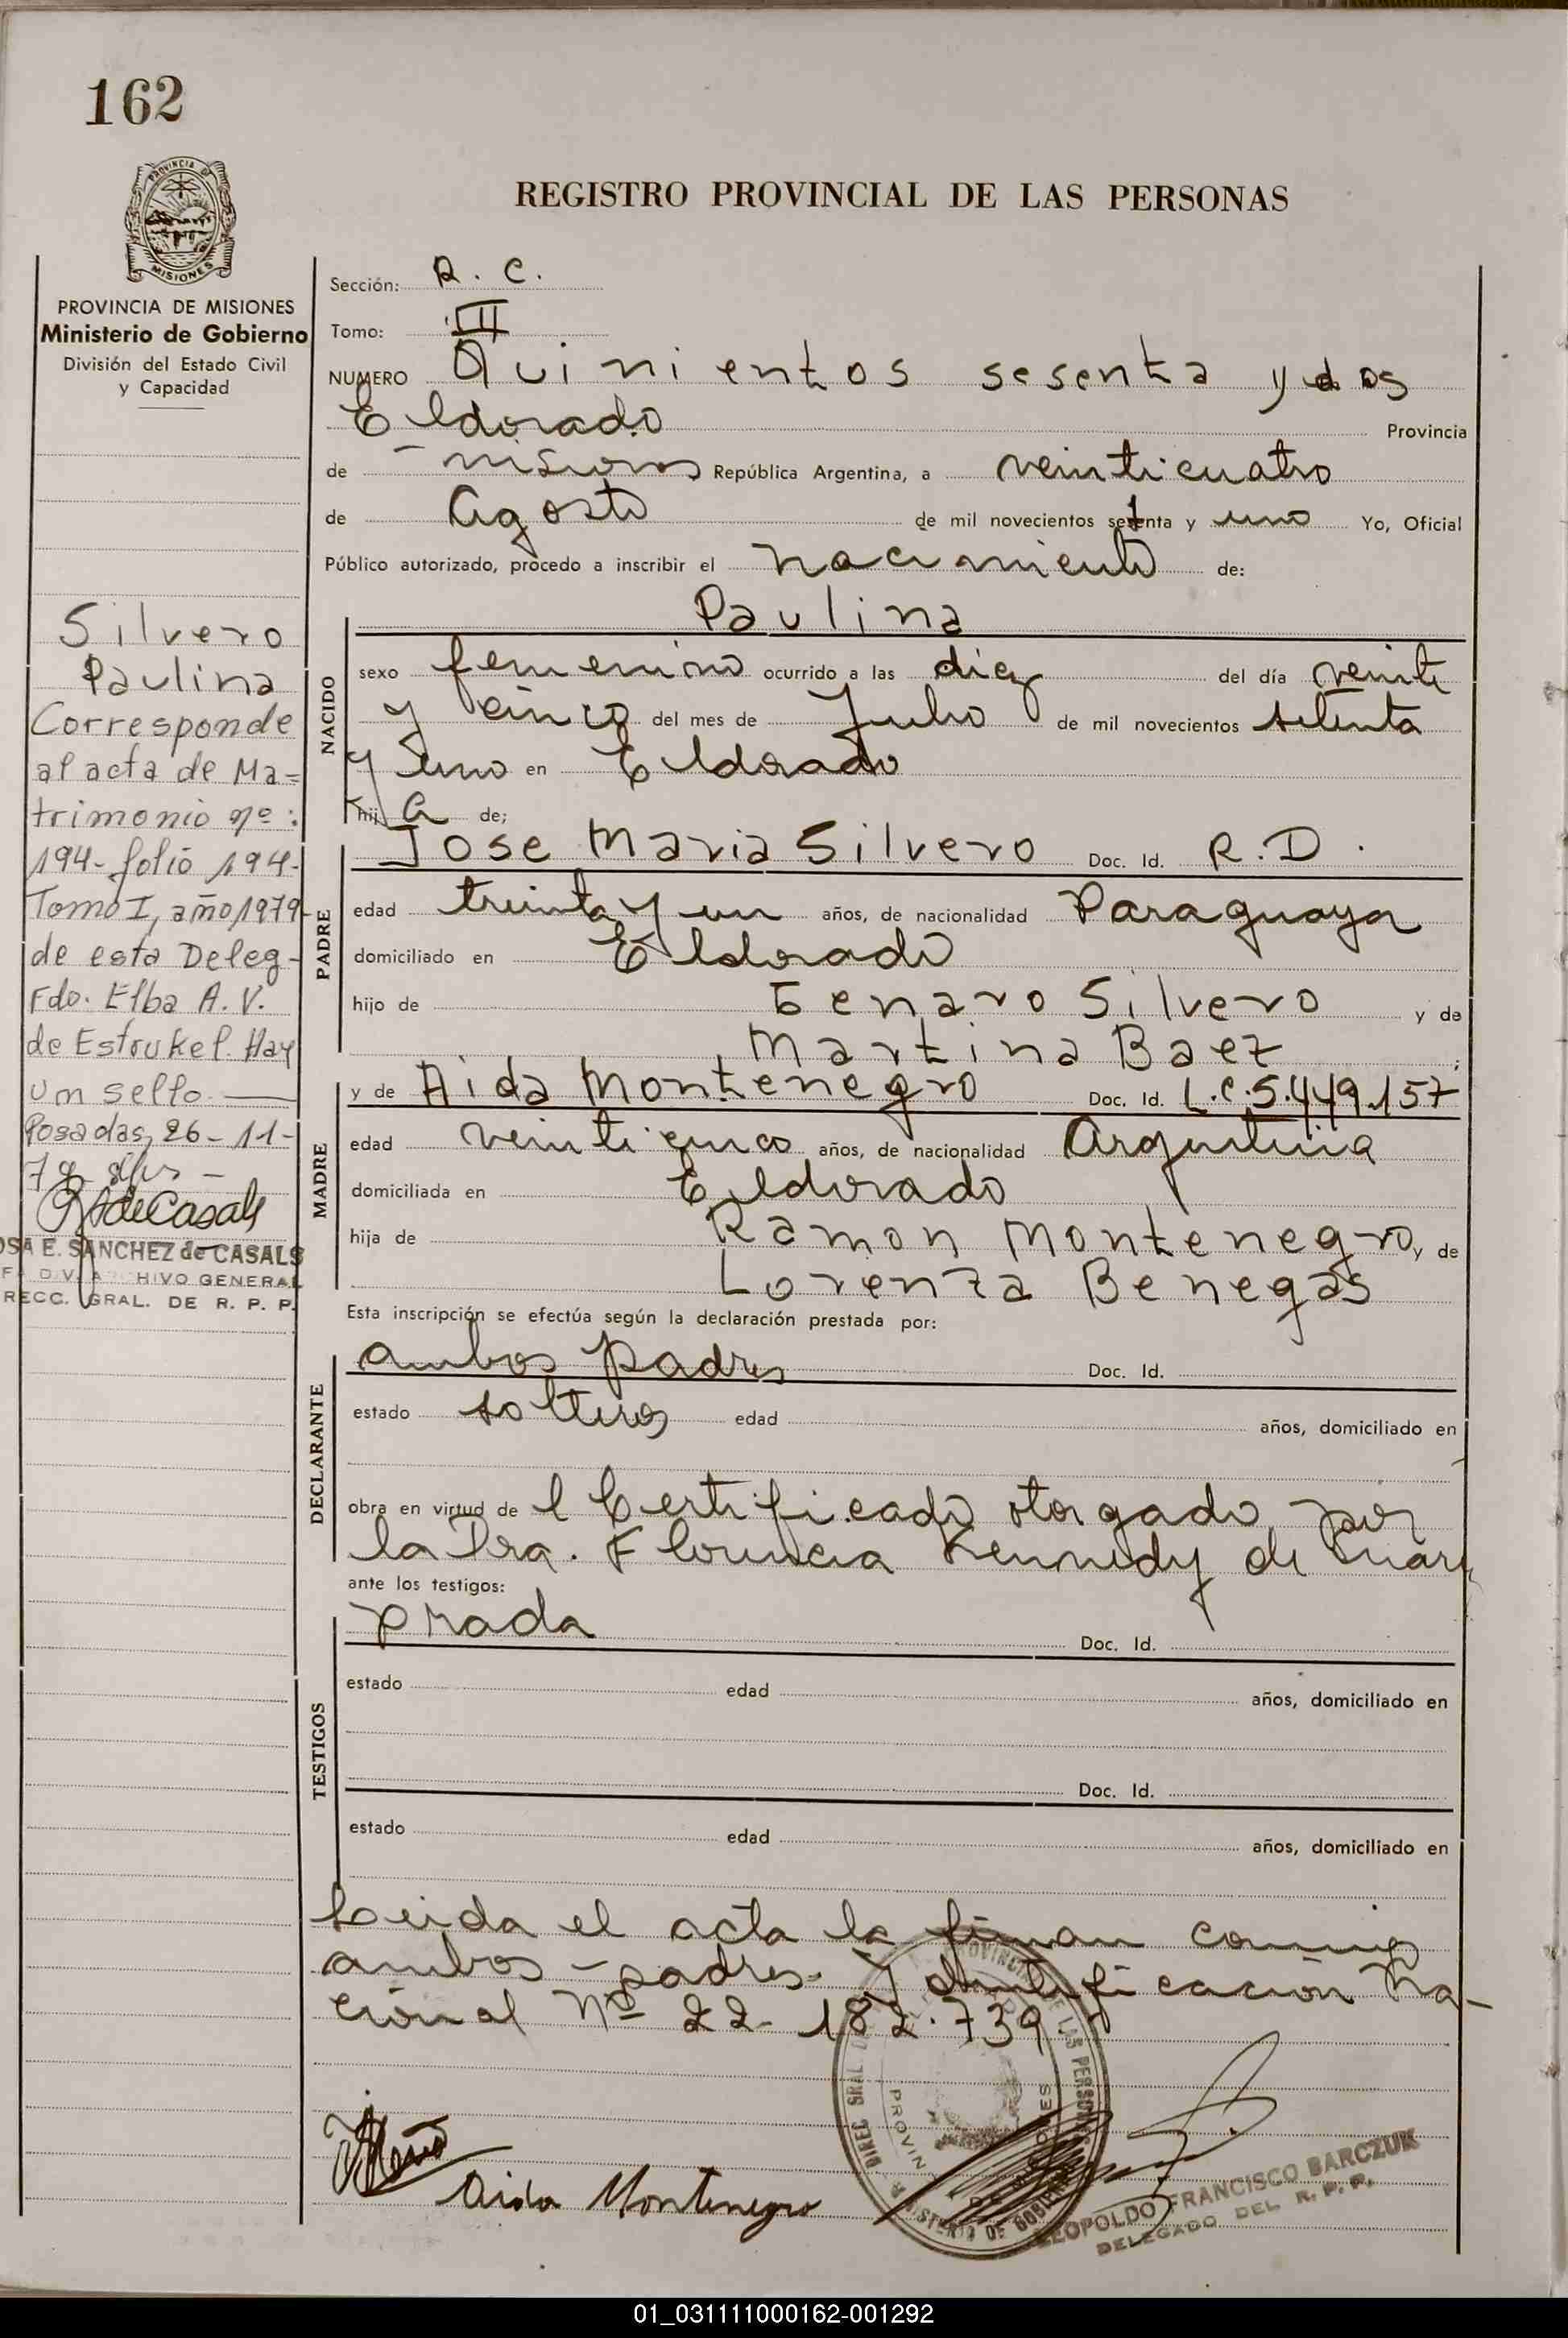 162
PROVINCIA DE
MISIONES
PROVINCIA DE MISIONES
Ministerio de Gobierno
División del Estado Civil
y Capacidad
REGISTRO PROVINCIAL DE LAS PERSONAS
Sección: R. C.
Tomo: III
NUMERO Quinientos sesenta y dos
Eldorado Provincia
de Misiones República Argentina, a veinticuatro
de Agosto de mil novecientos setenta y uno Yo, Oficial
Público autorizado, procedo a inscribir el nacimiento de:
Silvero
Paulina
Corresponde
al acta de Ma=
trimonio nº:
194- folio 194-
Tomo I, año 1979
de esta Deleg-
Fdo. Elba A. V.
de Estrukel. Hay
un sello.
Posadas, 26-11-
79
R S de Casals
OSA E. SANCHEZ de CASALS
F DIV. ARCHIVO GENERAL
RECC. GRAL. DE R. P. P.
NACIDO
Paulina
sexo femenino ocurrido a las diez del día veinte
y cinco del mes de Julio de mil novecientos setenta
y uno en Eldorado
hija de;
PADRE
Jose Maria Silvero Doc. Id. R.D.
edad treinta y un años, de nacionalidad Paraguaya
domiciliado en Eldorado
hijo de Genaro Silvero y de
Martina Baez ;
MADRE
y de Aida Montenegro Doc. Id. L.C.5.449.157
edad veinticinco años, de nacionalidad Argentina
domiciliada en Eldorado
hija de Ramon Montenegro y de
Lorenza Benegas
Esta inscripción se efectúa según la declaración prestada por:
DECLARANTE
ambos padres Doc. Id.
estado solteros edad años, domiciliado en
obra en virtud de l Certificado otorgado por
la Dra. Florencia Kennedy de
ante los testigos:
TESTIGOS
prada Doc. Id.
estado edad años, domiciliado en
Doc. Id.
estado edad años, domiciliado en
Leida el acta la firman conmigo
ambos padres. Identificación Na-
cional Nº 22.182.739
Aida Montenegro
LEOPOLDO FRANCISCO BARCZUK
DELEGADO DEL R. P. P.
01_031111000162-001292